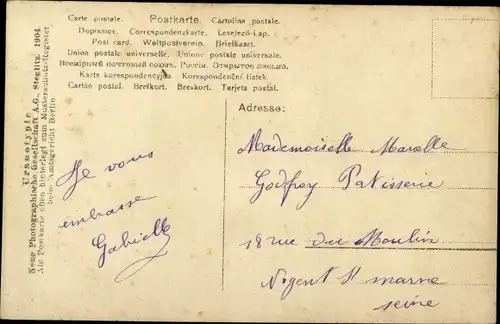 Carte postale. Postkarte. Cartolina postale.
Dopisnice. Correspondenzkarte. Levelező-Lap.
Post card. Weltpostverein. Briefkaart.
Union postale universelle. Unione postale universale.
Всемірный почтовый союзъ. Россія. Открытое письмо.
Karta korespondencyjna. Korespondenční lístek.
Cartão postal. Brefkort. Brevkort. Tarjeta postal.
Uranotypie
Neue Photographische Gesellschaft A.G., Steglitz. 1904.
Als Postkarte offen hinterlegt zum Musterschutz-Register
beim Amtsgericht Berlin
Adresse:
Je vous
embrasse
Gabielle
Mademoiselle Marelle
Godfroy Patisserie
18 rue du Moulin
Nogent St marne
seine